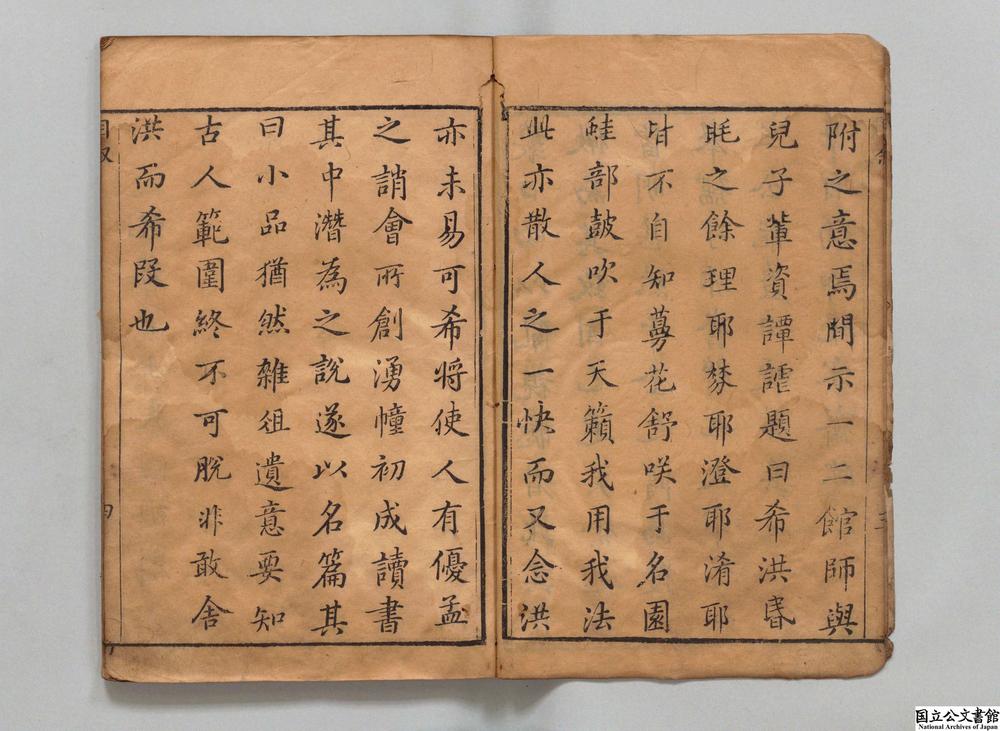 附之意焉閒示一二館師與
兒子輩資譚謔題曰希洪昏
眊之餘理耶棼耶澄耶淆耶
皆不自知蕚花舒咲于名園
鮭部皷吹于天籟我用我法
此亦散人之一快而又念洪
亦未易可希将使人有優孟
之誚會所創湧幢初成讀書
其中潛為之說遂以名篇其
曰小品猶然雜俎遺意要知
古人範圍終不可脫非敢舍
洪而希叚也
三
四
国立公文書館
National Archives of Japan